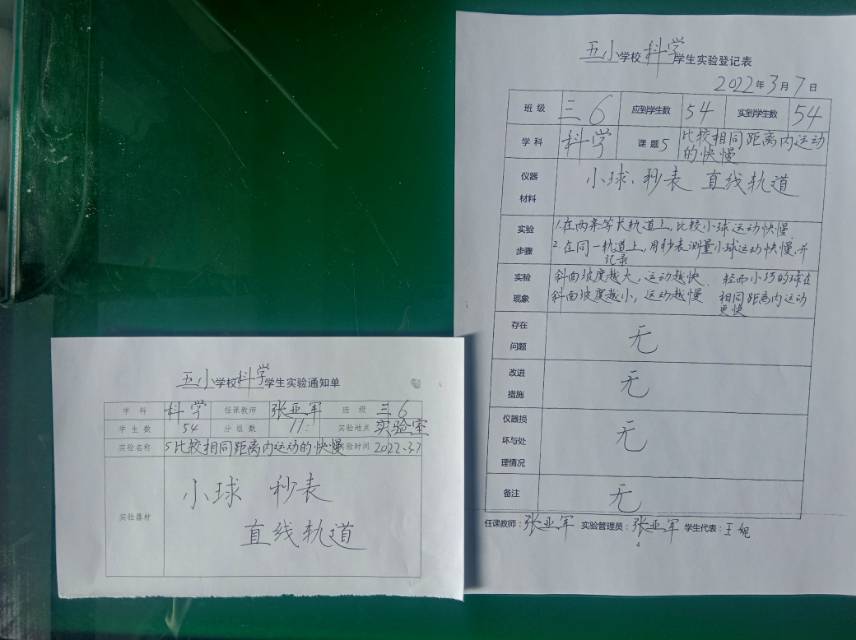 五小学校科学学生实验通知单
学科 科学 任课教师 张亚军 班级 三6
学生数 54 分组数 11 实验地点 实验室
实验名称 5比较相同距离内运动的快慢 实验时间 2022.3.7
实验器材
小球 秒表
直线轨道
五小学校科学学生实验登记表
2022年3月7日
班级 三6 应到学生数 54 实到学生数 54
学科 科学 课题 5 比较相同距离内运动
的快慢
仪器
材料
小球、秒表 直线轨道
实验
步骤
1.在两条等长轨道上,比较小球运动快慢
2.在同一轨道上,用秒表测量小球运动快慢,并
记录
实验
现象
斜面坡度越大,运动越快
斜面坡度越小,运动越慢
轻而小巧的球在
相同距离内运动
更快
存在
问题
无
改进
措施
无
仪器损
坏与处
理情况
无
备注
无
任课教师:张亚军 实验管理员:张亚军 学生代表:王